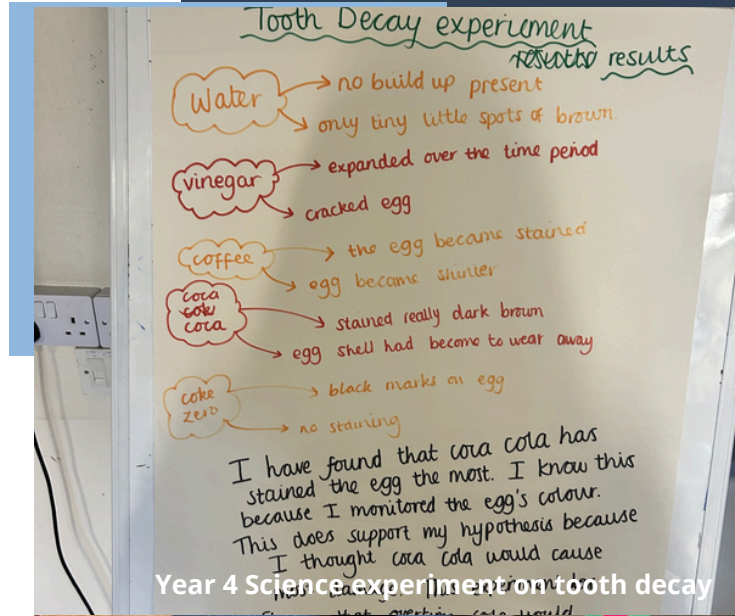 Tooth Decay experiment
results
Water
no build up present
only tiny little spots of brown.
vinegar
expanded over the time period
cracked egg
coffee
the egg became stained
egg became shinier
coca
coca
stained really dark brown
egg shell had become to wear away
coke
zero
black marks on egg
no staining
I have found that coca cola has
stained the egg the most. I know this
because I monitored the egg's colour.
This does support my hypothesis because
I thought coca cola would cause
Year 4 Science experiment on tooth decay
that overtime cola would